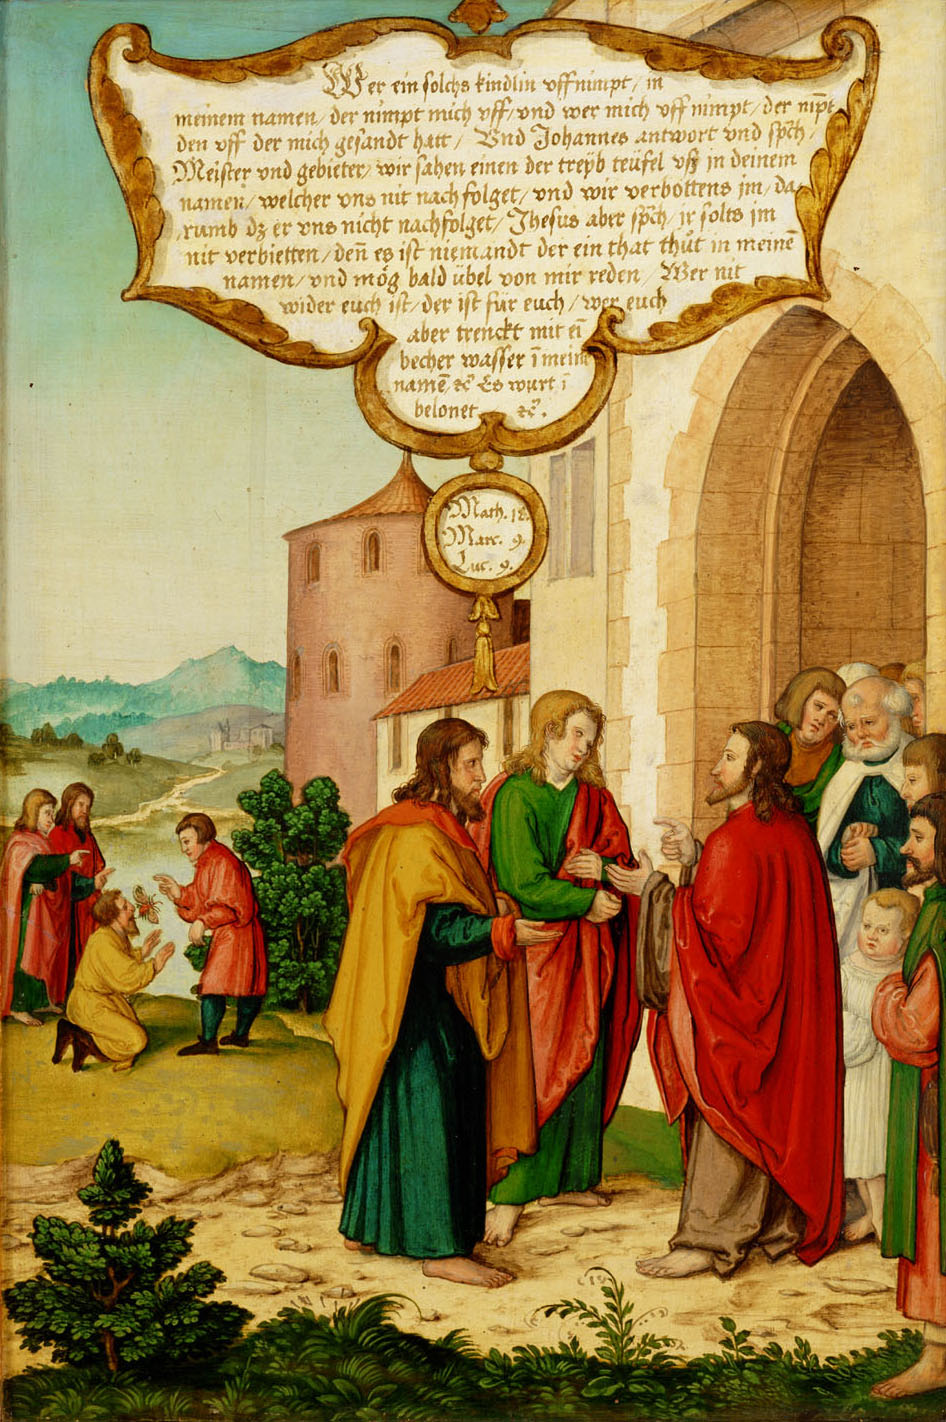 Wer ein solchs kindlin vffnimpt / in
meinem namen / der nimpt mich vff / vnd wer mich vff nimpt / der nim̄pt
den vff der mich gesandt hatt / Vnd Johannes antwort vnd sp̄ch /
Meister vnd gebieter / wir sahen einen der treÿb teüfel vsz in deinem
namen / welcher vns nit nachfolget / vnd wir verbottens jm / da,
rumb dz er vns nicht nachfolget / Jhesus aber sp̄ch / jr solts jm
nit verbietten / deñ es ist niemandt der ein that thůt in meinē
namen / vnd mög bald übel von mir reden / Wer nit
wider euch ist / der ist für euch / wer euch
aber trenckt mit eī
becher wasser ī meim
namē / ꝛcͣ Es wurt ī
belonet ꝛcͣ.
Math. 18.
Marc. 9.
Luc. 9.